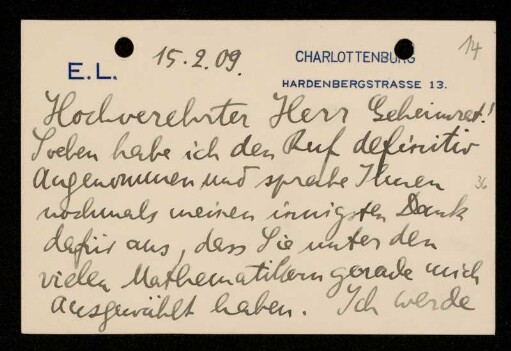 14
E.L.
15.2.09.
CHARLOTTENBURG
HARDENBERGSTRASSE 13.
Hochverehrter Herr Geheimrat!
Soeben habe ich den Ruf definitiv
angenommen und spreche Ihnen
36
nochmals meinen innigsten Dank
dafür aus, dass Sie unter den
vielen Mathematikern gerade mich
ausgewählt haben. Ich werde